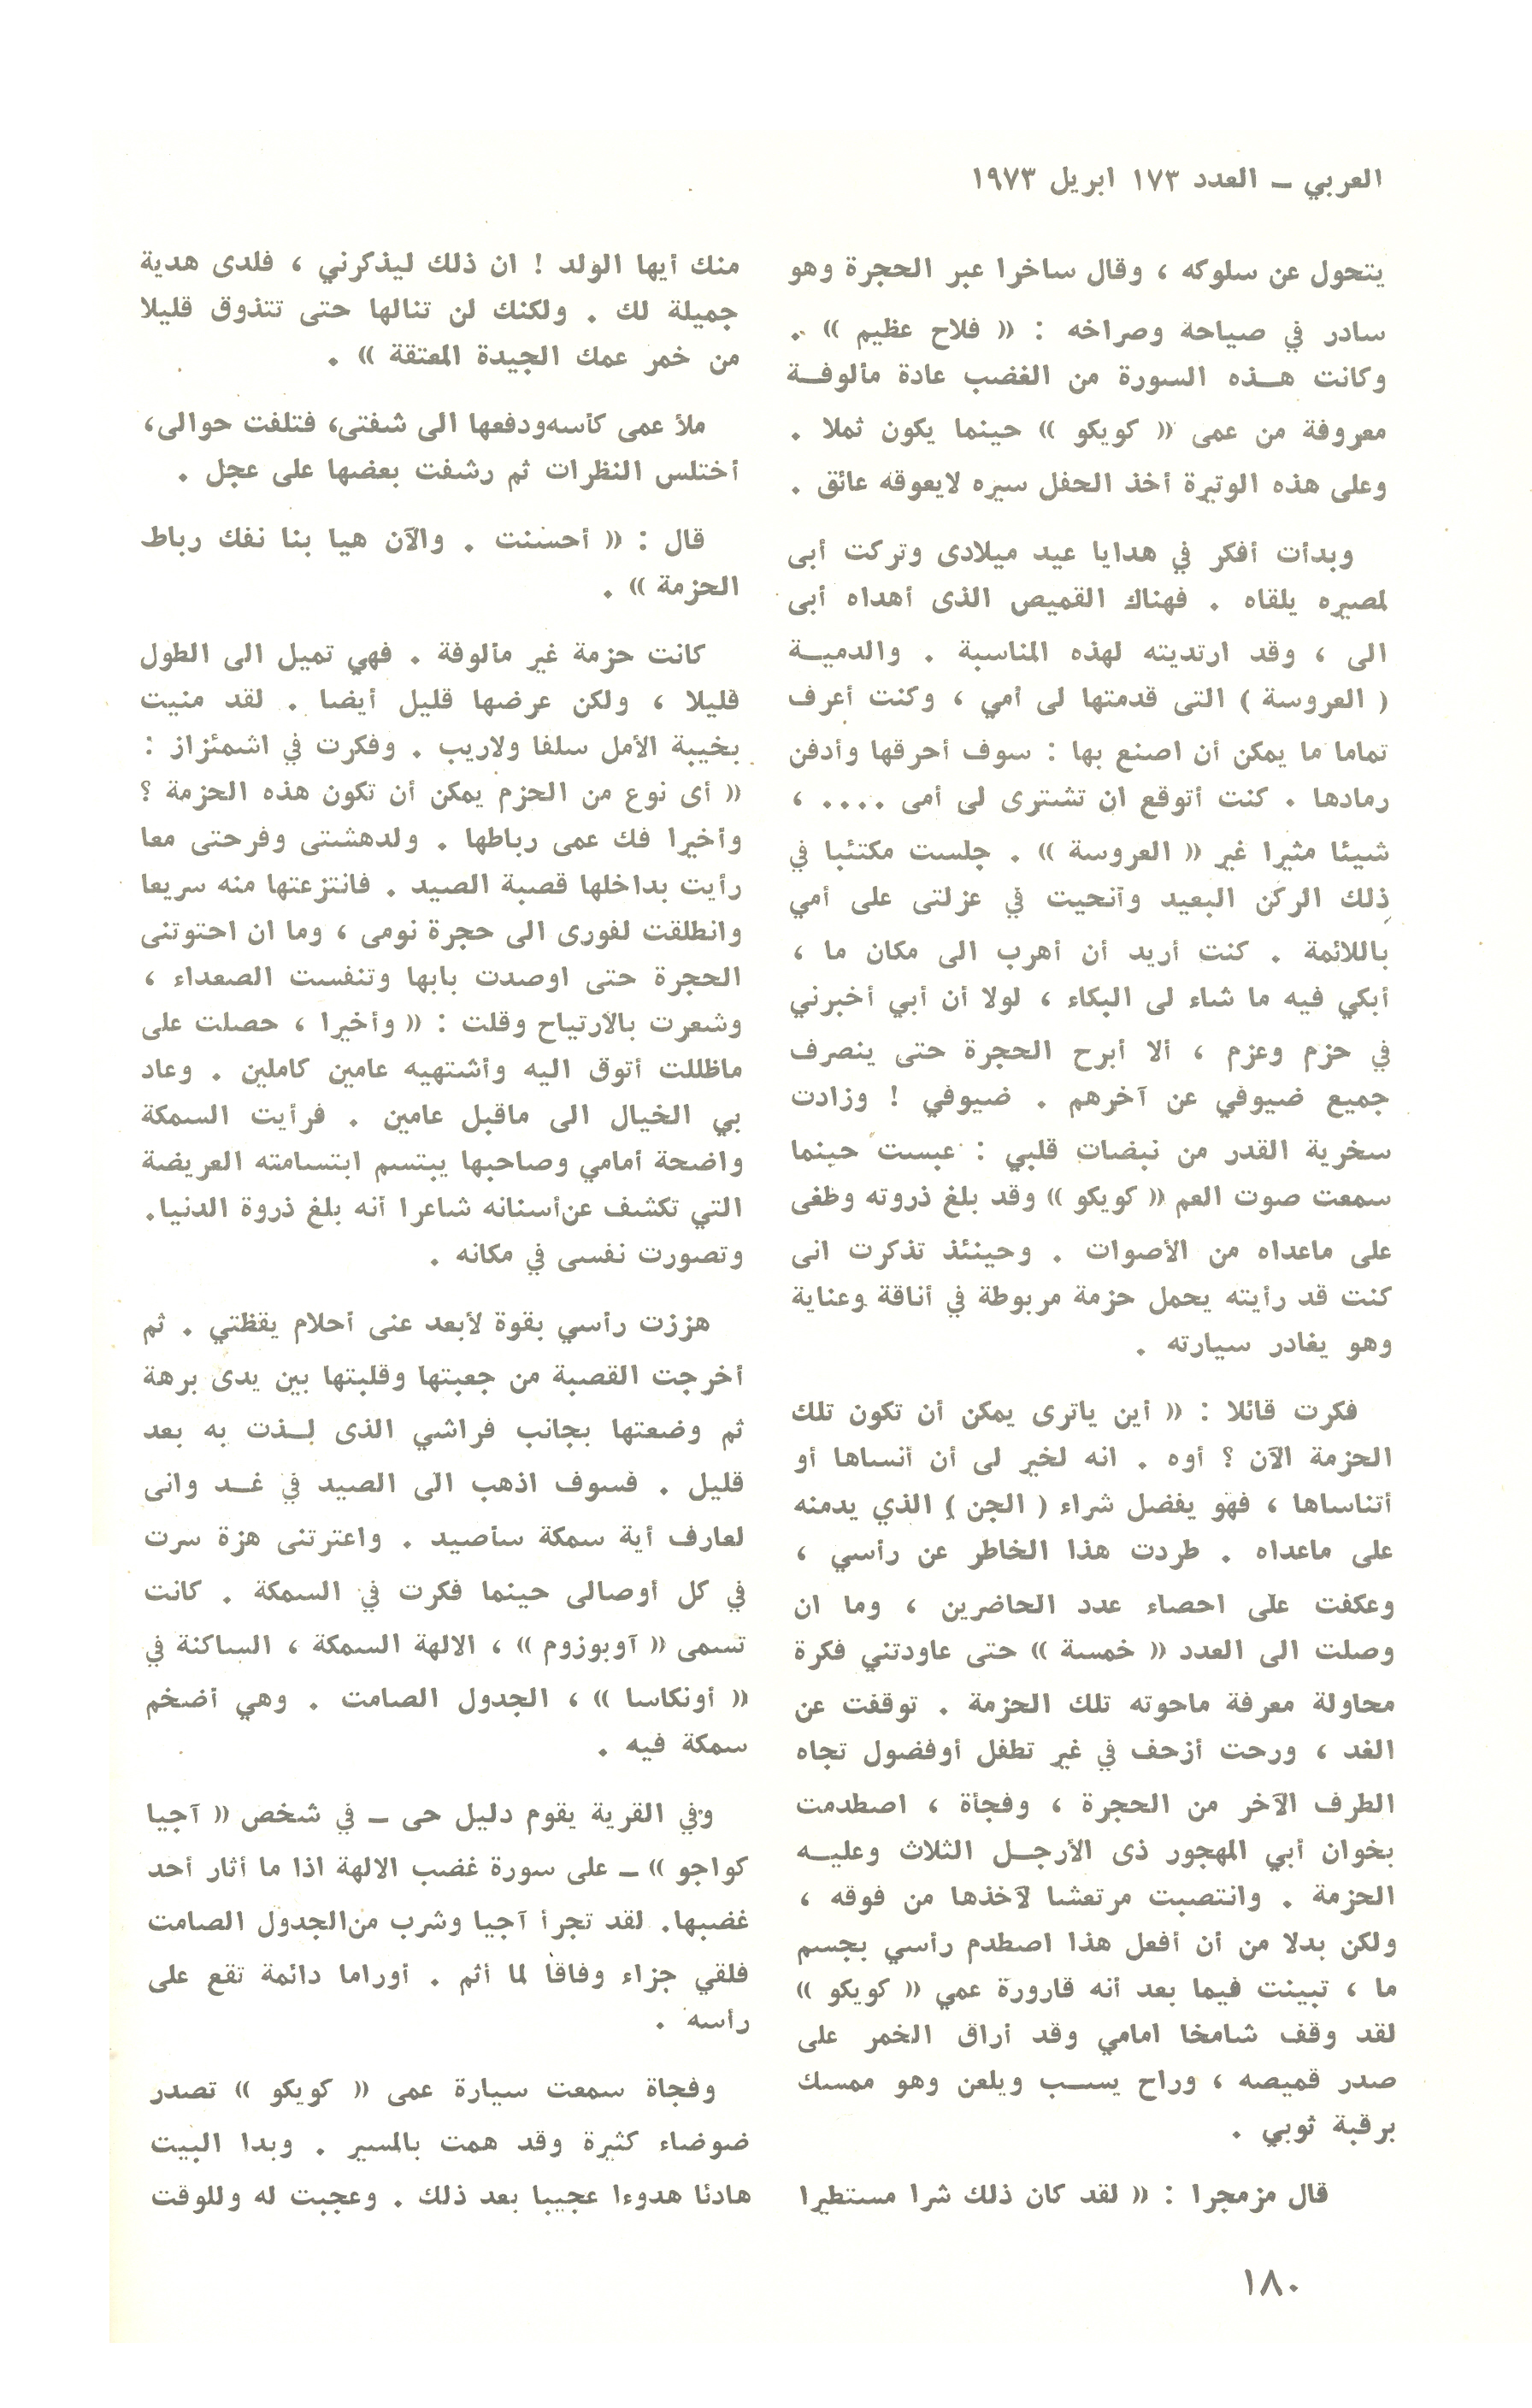 العربي – العدد ١٧٣ ابريل ١٩٧٣
يتحول عن سلوكه ، وقال ساخرا عبر الحجرة وهو
سادر في صياحة وصراخه : « فلاح عظيم » .
وكانت هـذه السورة من الغضب عادة مألوفـة
معروفة من عمى « كويكو » حينما يكون ثملا .
وعلى هذه الوتيرة أخذ الحفل سيره لايعوقه عائق .
وبدأت أفكر في هدايا عيد ميلادى وتركت أبى
لمصيره يلقاه . فهناك القميص الذى أهداه أبى
الى ، وقد ارتديته لهذه المناسبة . والدميـة
( العروسة ) التى قدمتها لى أمي ، وكنت أعرف
تماما ما يمكن أن اصنع بها : سوف أحرقها وأدفن
رمادها . كنت أتوقع ان تشترى لى أمى .... ،
شيئا مثيرا غير « العروسة » . جلست مكتئبا في
ذلك الركن البعيد وأنحيت في عزلتى على أمي
باللائمة . كنت أريد أن أهرب الى مكان ما ،
أبكي فيه ما شاء لى البكاء ، لولا أن أبي أخبرني
في حزم وعزم ، ألا أبرح الحجرة حتى ينصرف
جميع ضيوفي عن آخرهم . ضيوفي ! وزادت
سخرية القدر من نبضات قلبي : عبست حينما
سمعت صوت العم « كويكو » وقد بلغ ذروته وطغى
على ماعداه من الأصوات . وحينئذ تذكرت انى
كنت قد رأيته يحمل حزمة مربوطة في أناقة وعناية
وهو يغادر سيارته .
فكرت قائلا : « أين ياترى يمكن أن تكون تلك
الحزمة الآن ؟ أوه . انه لخير لى أن أنساها أو
أتناساها ، فهو يفضل شراء ( الجن ) الذي يدمنه
على ماعداه . طردت هذا الخاطر عن رأسي ،
وعكفت على احصاء عدد الحاضرين ، وما ان
وصلت الى العدد « خمسة » حتى عاودتني فكرة
محاولة معرفة ماحوته تلك الحزمة . توقفت عن
الغد ، ورحت أزحف في غير تطفل أوفضول تجاه
الطرف الآخر من الحجرة ، وفجأة ، اصطدمت
بخوان أبي المهجور ذى الأرجـل الثلاث وعليـه
الحزمة . وانتصبت مرتعشا لآخذها من فوقه ،
ولكن بدلا من أن أفعل هذا اصطدم رأسي بجسم
ما ، تبينت فيما بعد أنه قارورة عمي « كويكو »
لقد وقف شامخا امامي وقد أراق الخمر على
صدر قميصه ، وراح يسـب ويلعن وهو ممسك
برقبة ثوبي .
قال مزمجرا : « لقد كان ذلك شرا مستطيرا
منك أيها الولد ! ان ذلك ليذكرني ، فلدى هدية
جميلة لك . ولكنك لن تنالها حتى تتذوق قليلا
من خمر عمك الجيدة المعتقة » .
ملأ عمى كأسه ودفعها الى شفتى، فتلفت حوالى،
أختلس النظرات ثم رشفت بعضها على عجل .
قال : « أحسنت . والآن هيا بنا نفك رباط
الحزمة » .
كانت حزمة غير مألوفة . فهي تميل الى الطول
قليلا ، ولكن عرضها قليل أيضا . لقد منيت
بخيبة الأمل سلفا ولاريب . وفكرت في اشمئزاز :
« أى نوع من الحزم يمكن أن تكون هذه الحزمة ؟
وأخيرا فك عمى رباطها . ولدهشتى وفرحتى معا
رأيت بداخلها قصبة الصيد . فانتزعتها منه سريعا
وانطلقت لفورى الى حجرة نومى ، وما ان احتوتنى
الحجرة حتى اوصدت بابها وتنفست الصعداء ،
وشعرت بالارتياح وقلت : « وأخيرا ، حصلت على
ماظللت أتوق اليه وأشتهيه عامين كاملين . وعاد
بي الخيال الى ماقبل عامين . فرأيت السمكة
واضحة أمامي وصاحبها يبتسم ابتسامته العريضة
التي تكشف عن أسنانه شاعرا أنه بلغ ذروة الدنيا.
وتصورت نفسى في مكانه .
هززت رأسي بقوة لأبعد عنى أحلام يقظتي . ثم
أخرجت القصبة من جعبتها وقلبتها بين يدى برهة
ثم وضعتها بجانب فراشي الذى لـذت به بعد
قليل . فسوف اذهب الى الصيد في غـد وانى
لعارف أية سمكة سأصيد . واعترتنى هزة سرت
في كل أوصالى حينما فكرت في السمكة . كانت
تسمى « آوبوزوم » ، الالهة السمكة ، الساكنة في
« أونكاسا » ، الجدول الصامت . وهي أضخم
سمكة فيه .
وفي القرية يقوم دليل حى – في شخص « آجيا
كواجو » – على سورة غضب الالهة اذا ما أثار أحد
غضبها. لقد تجرأ آجيا وشرب من الجدول الصامت
فلقي جزاء وفاقا لما أثم . أوراما دائمة تقع على
رأسه .
وفجاة سمعت سيارة عمى « كويكو » تصدر
ضوضاء كثيرة وقد همت بالمسير . وبدا البيت
هادئا هدوءا عجيبا بعد ذلك . وعجبت له وللوقت
١٨٠